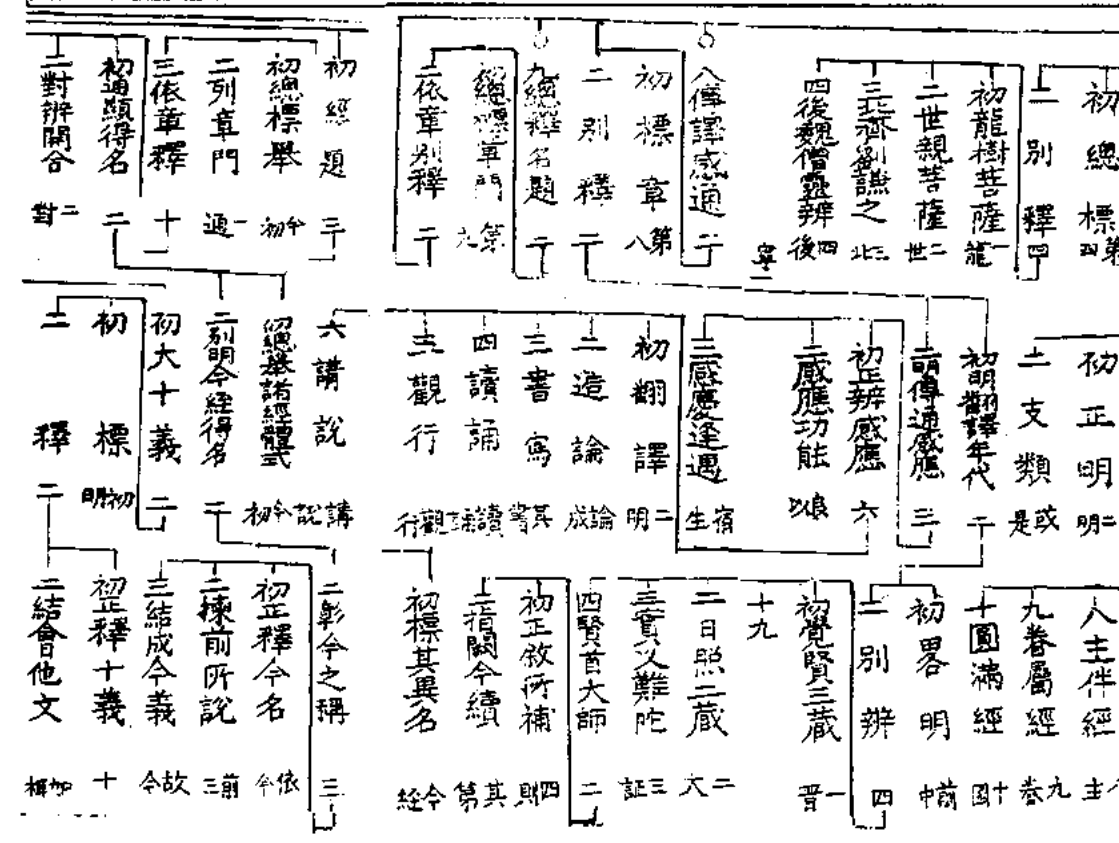 初總標
二別釋 四
初龍樹菩薩 一龍
二世親菩薩 二世
三北齊劉謙之 三北
四後魏僧靈辨 四後
八傳譯感通 二
初標章 第八
二別釋 二
九總釋名題 二
初總標章門 第九
二依章別釋 二
初經題 三
初總標舉 今初
二列章門 一通
三依章釋 十
初通顯得名 二
二對辨開合 二對
初正明 二明
二支類 或是
初明翻譯年代 二
二明傳通感應 三
初正辨感應 六
二感應功能 以良
三感慶逢遇 宿生
初翻譯 二明
二造論 論成
三書寫 其書
四讀誦 讀誦
三觀行 觀行
六講說 講說
初總舉諸經體式 今初
二別明今經得名 二
初大十義 二
初標 初明
二釋 二
八主伴經 八主
九眷屬經 九眷
十圓滿經 十圓
初畧明 前中
二別辨 四
初覺賢三藏 一晋
十九
二日照三藏 二大
三實叉難陀 三証
四賢首大師 二
初正敘所補 四則
二指闕今續 其第
初標其異名 今經
二彰今之稱 三
初正釋今名 依今
二揀前所說 前三
三結成今義 故今
初正釋十義 十
二結會他文